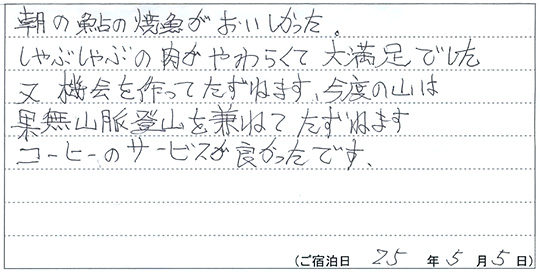 朝の鮎の焼魚がおいしかった。
しゃぶしゃぶの肉がやわらくて大満足でした
又機会を作ってたずねます、今度の山は
果無山脈登山を兼ねてたずねます
コーヒーのサービスが良かったです、
(ご宿泊日 25 年 5 月 5 日)